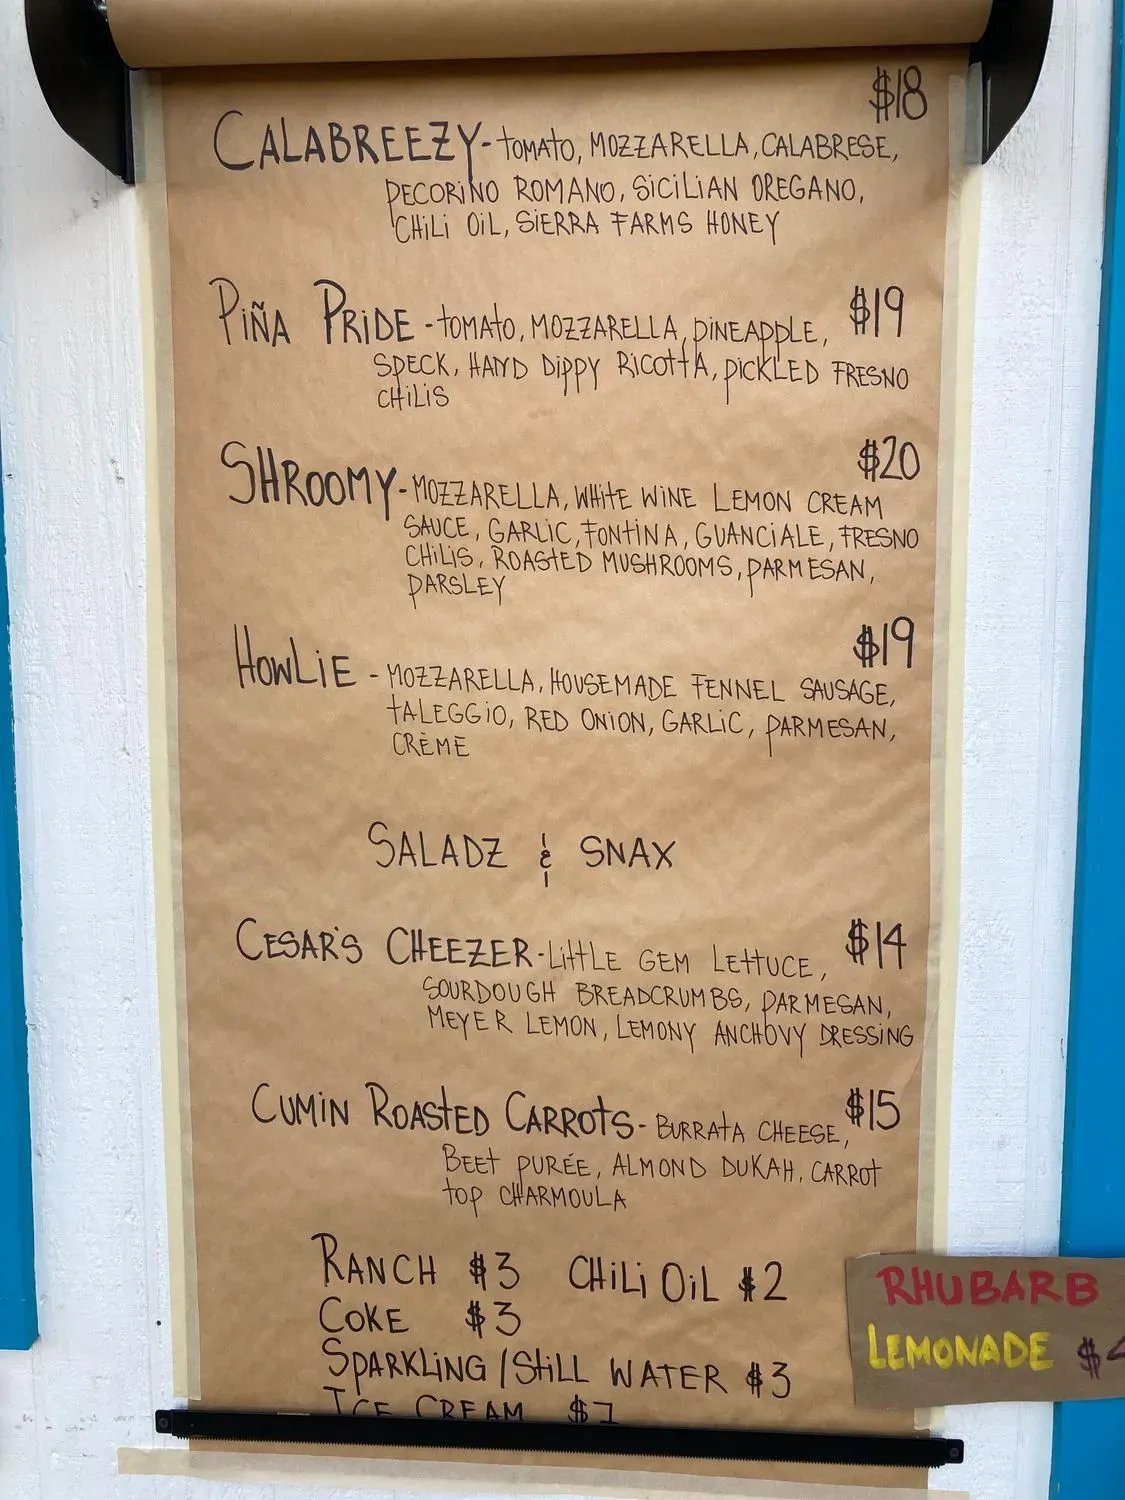 $18
CALABREEZY - TOMATO, MOZZARELLA, CALABRESE,
PECORINO ROMANO, SICILIAN OREGANO,
CHILI OIL, SIERRA FARMS HONEY
PIÑA PRIDE - TOMATO, MOZZARELLA, PINEAPPLE, $19
SPECK, HAND DIPPY RICOTTA, PICKLED FRESNO
CHILIS
$20
SHROOMY - MOZZARELLA, WHITE WINE LEMON CREAM
SAUCE, GARLIC, FONTINA, GUANCIALE, FRESNO
CHILIS, ROASTED MUSHROOMS, PARMESAN,
PARSLEY
$19
HOWLIE - MOZZARELLA, HOUSEMADE FENNEL SAUSAGE,
TALEGGIO, RED ONION, GARLIC, PARMESAN,
CRÈME
SALADZ & SNAX
CESAR'S CHEEZER - LITTLE GEM LETTUCE, $14
SOURDOUGH BREADCRUMBS, PARMESAN,
MEYER LEMON, LEMONY ANCHOVY DRESSING
CUMIN ROASTED CARROTS - BURRATA CHEESE, $15
BEET PURÉE, ALMOND DUKAH, CARROT
TOP CHARMOULA
RANCH $3 CHILI OIL $2
COKE $3
SPARKLING/STILL WATER $3
ICE CREAM
RHUBARB
LEMONADE $